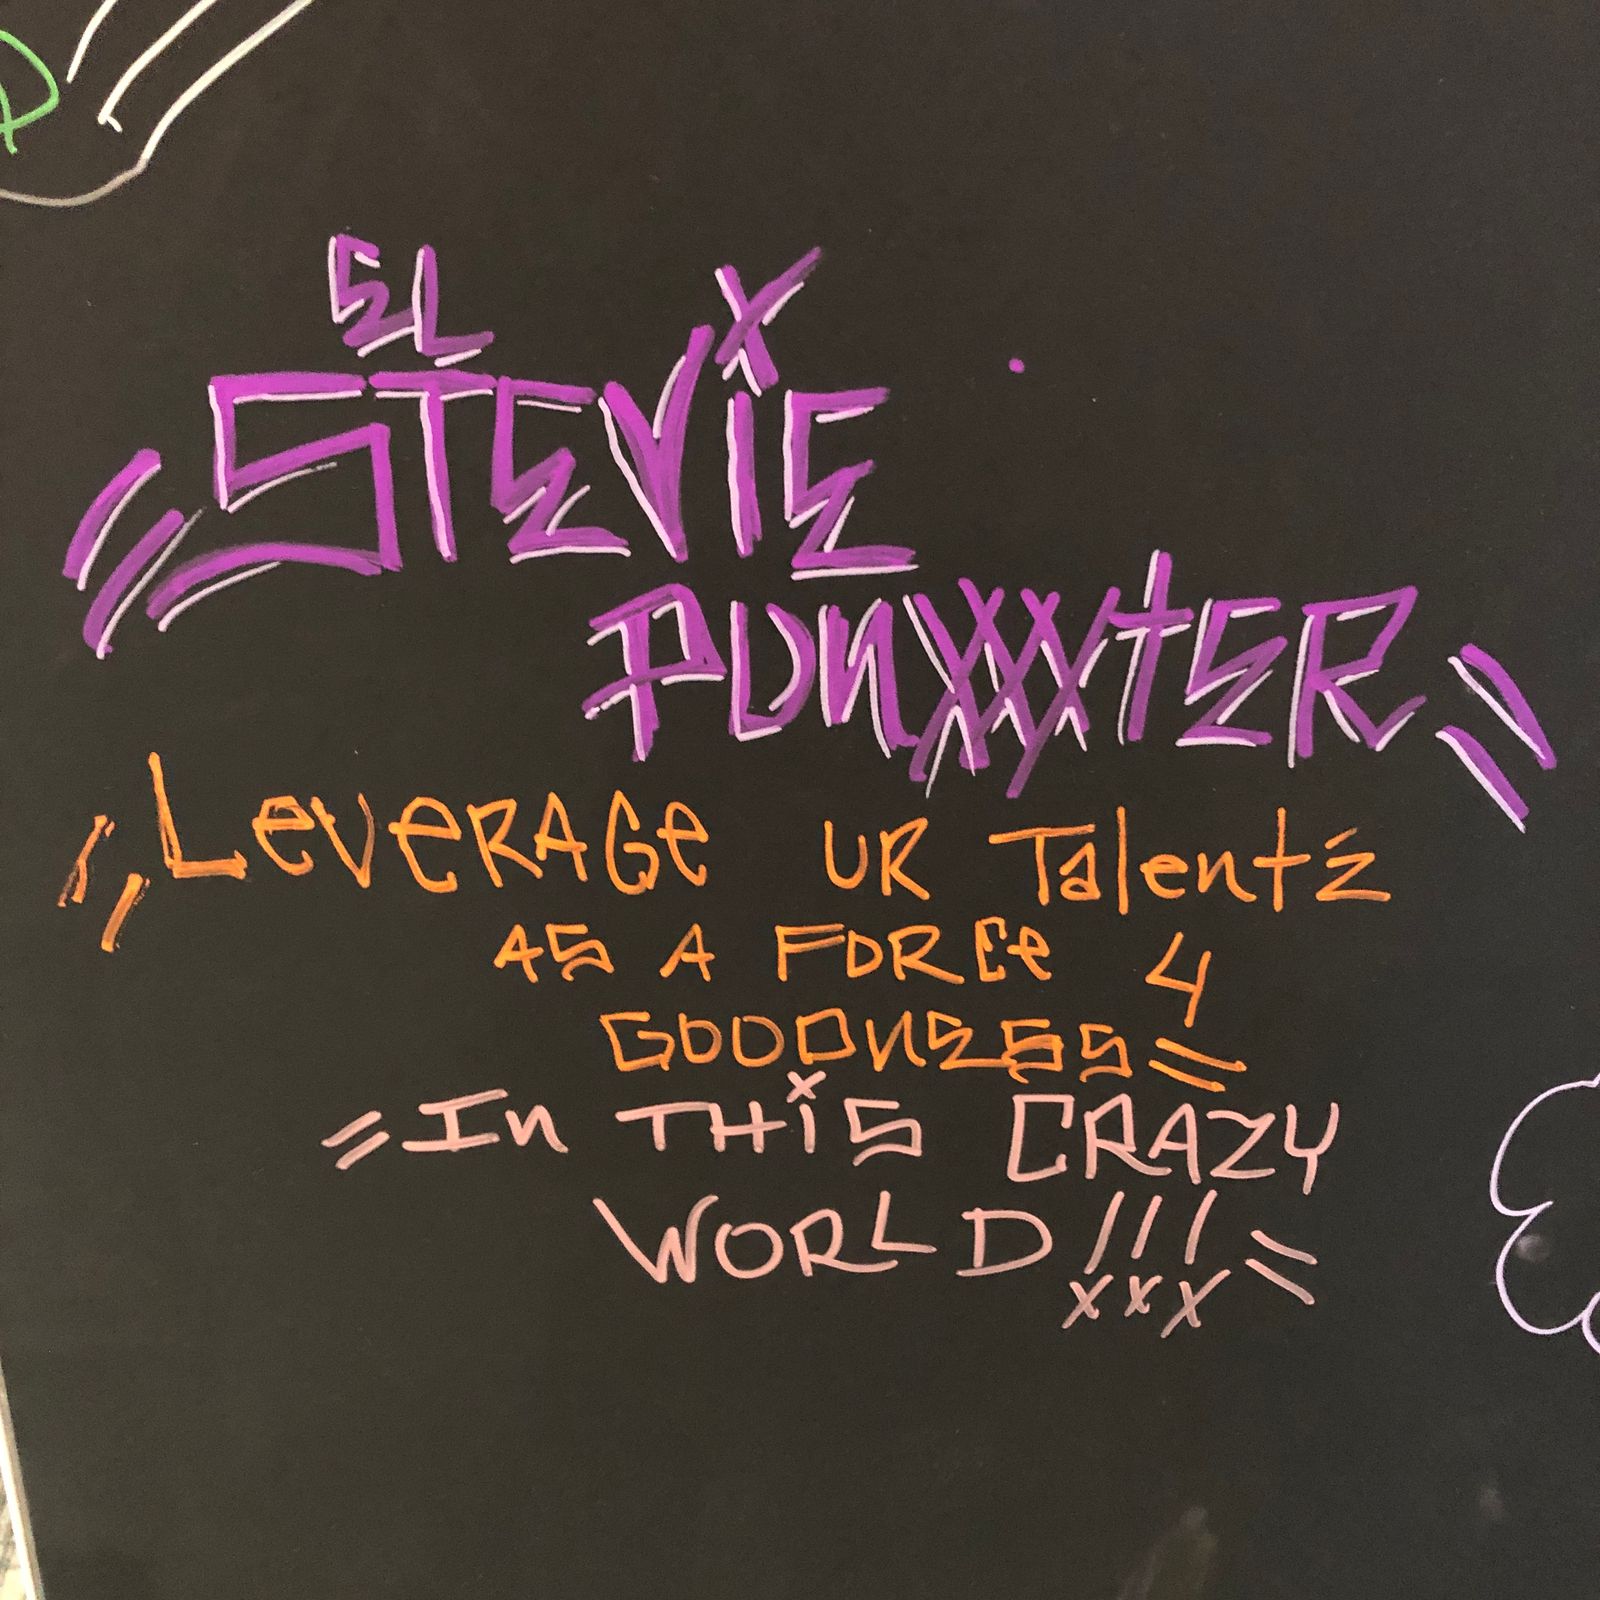 EL
"STEViE
PUNXXXTER"
"LeveRAGe UR TalentZ
AS A FORCe 4
GOODNESS"
"In THiS CRAZY
WORLD!!!"